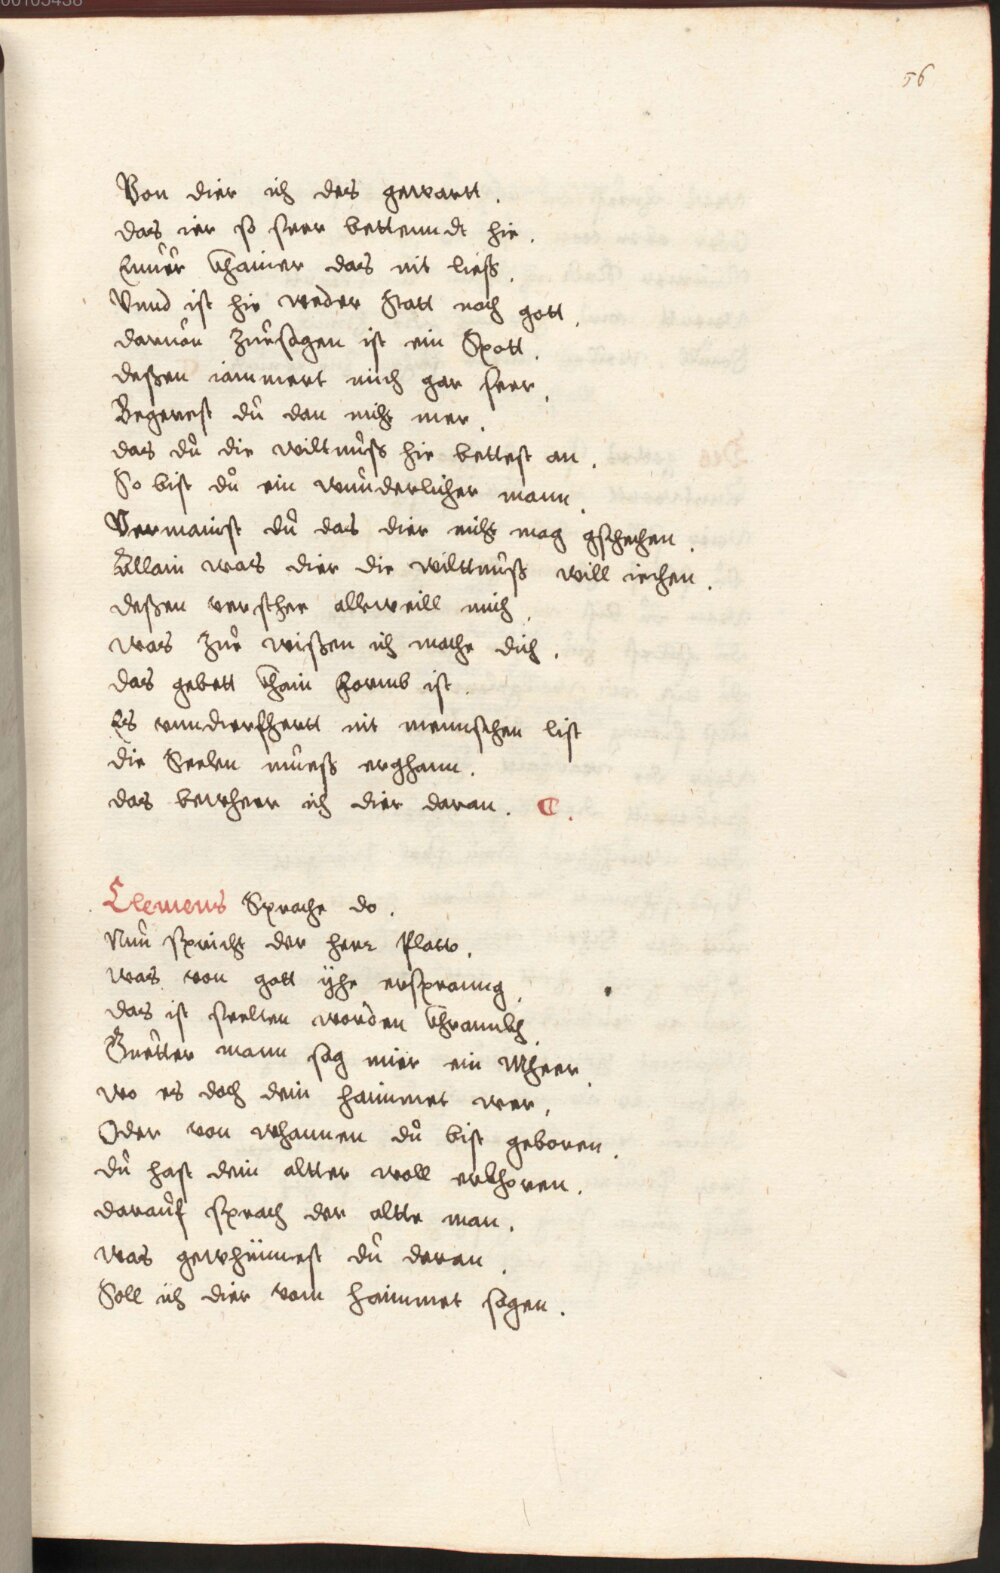 56
Von dier ich des gewartt.
das ier so seer bettenndt hie.
Eŭŭer khainer das nit ließ.
Vnnd ist hie weder Statt noch gott.
daruon Zuŭsagen ist ein Spott.
deßen iammert mich gar seer.
Begerest dŭ dan nicht mer.
das dŭ die wiltnŭß hie bettest an.
So bist dŭ ein wŭnderlicher mann.
Vermainst dŭ das dier nicht mag gschechen.
Allain was dier die wilttnŭß will iechen.
deßen verscher allweill mich.
was Zŭe wißen ich mache dich.
das gebett khain formb ist.
Es vnnderfhertt nit mennschen list
die Seelen mŭeß erghann.
das bewheer ich dier daran. C.
Clemens Sprache do.
Nŭn spricht der herr Platto.
was von gott yhe erspranng.
das ist seelten worden khrannkh.
Gŭetter mann sag mier ein Mheer.
wo es doch dein haimmet wer.
Oder von whannen dŭ bist geboren.
dŭ hast dein altter woll erkhoren.
daraŭf sprach der altte man.
was gewhünnest dŭ daran.
Soll ich dier vom haimmet sagen.